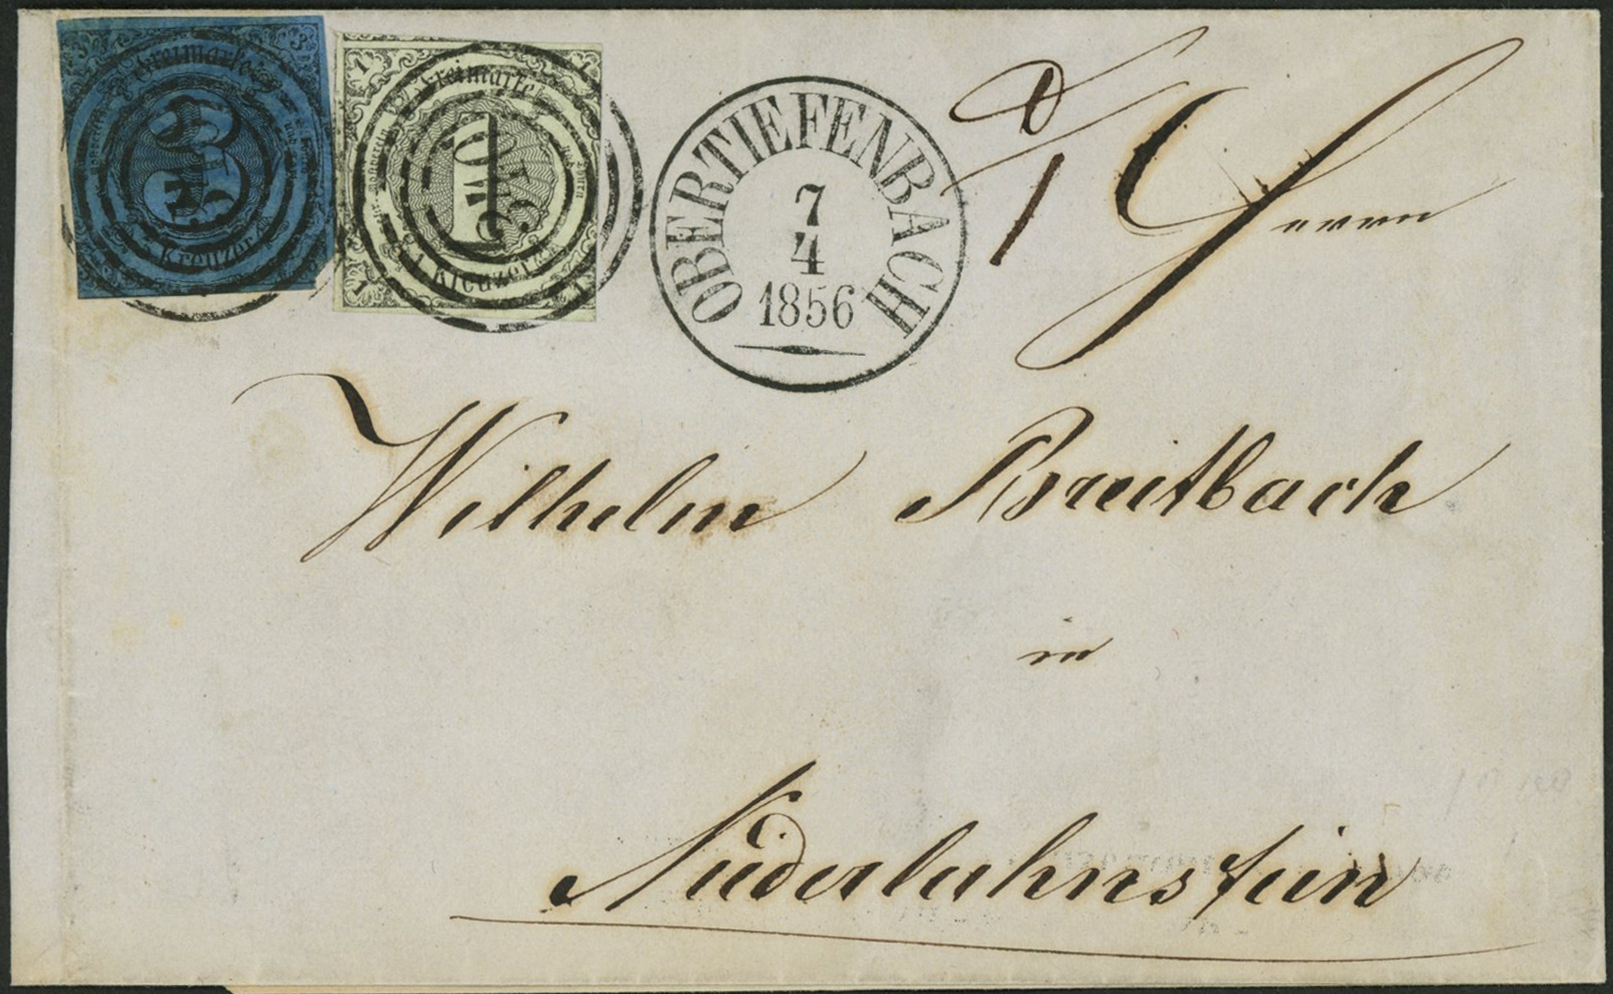 Freimarke
3
Kreuzer
Freimarke
1
1 Kreuzer
OBERTIEFENBACH
7
4
1856
Herrn
Wilhelm Breitbach
in
Niederlahnstein